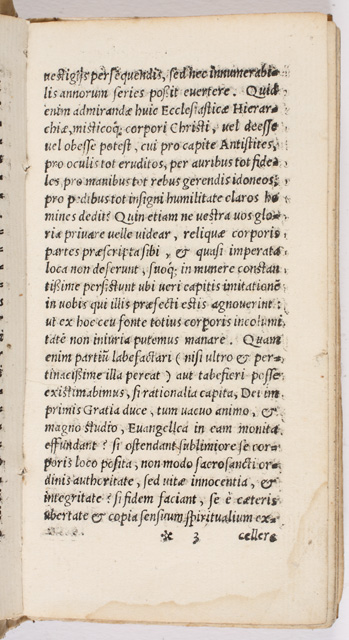 uestigijs persequendis, sed nec innumerabi-
lis annorum series poßit euertere. Quid
enim admirandæ huic Ecclesiasticæ Hierar-
chiæ, misticoq; corpori Christi, uel deesse
uel obesse potest, cui pro capite Antistites,
pro oculis tot eruditos, per auribus tot fide-
les pro manibus tot rebus gerendis idoneos;
pro pedibus tot insigni humilitate claros ho
mines dedit? Quin etiam ne uestra uos glo-
ria priuare uelle uidear, reliquæ corporis
partes præscripta sibi, & quasi imperata
loca non deserunt, suoq; in munere constan
tißime persistunt ubi ueri capitis imitationē
in uobis qui illis præfecti estis agnouerint:
ut ex hoc ceu fonte totius corporis incolumi
tatē non iniuria putemus manare. Quam
enim partiū labefactari (nisi ultro & per-
tinacißime illa pereat) aut tabefieri posse
existimabimus, si rationalia capita, Dei im
primis Gratia duce, tum uacuo animo, &
magno studio, Euangelica in eam monita
effundant? si ostendant sublimiore se cor-
poris loco posita, non modo sacrosancti or-
dinis authoritate, sed uitæ innocentia, &
integritate? si fidem faciant, se è cæteris
ubertate & copia sensuum spiritualium ex-
* 3 cellere